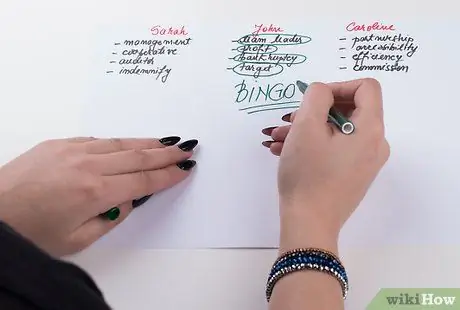 Sarah
- management
- cooperative
- auditor
- indemnify
John
- team leader
- profit
- bankruptcy
- target
BINGO
Caroline
- partnership
- accessibility
- efficiency
- commission
wikiHow